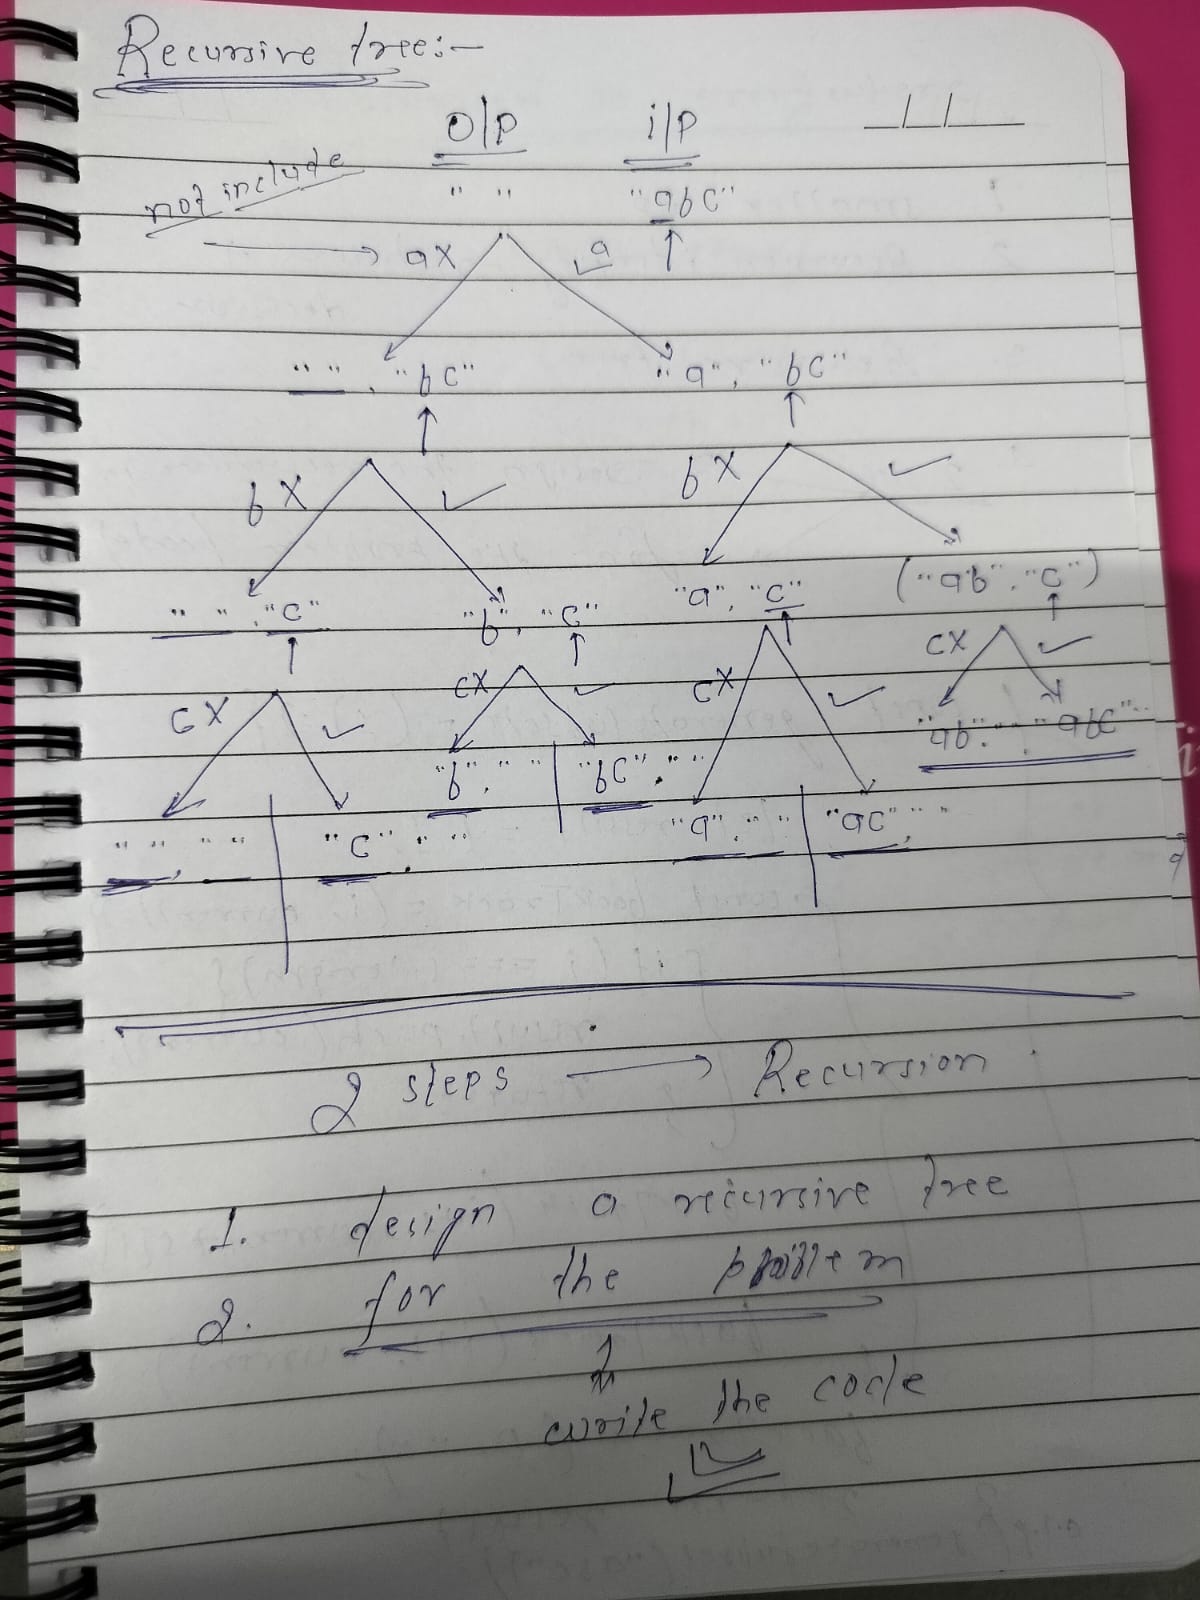 Recursive tree:-
O/P i/P
not include " " "abc"
ax a
" ", "bc" "a", "bc"
bx bx
" ", "c" "b", "c" "a", "c" ("ab", "c")
cx cx cx cx
"b", " " "bc", " " "ab", " " "abc", " "
" ", " " "c", " " "a", " " "ac", " "
2 steps → Recursion
1. design a recursive tree
2. for the problem
write the code